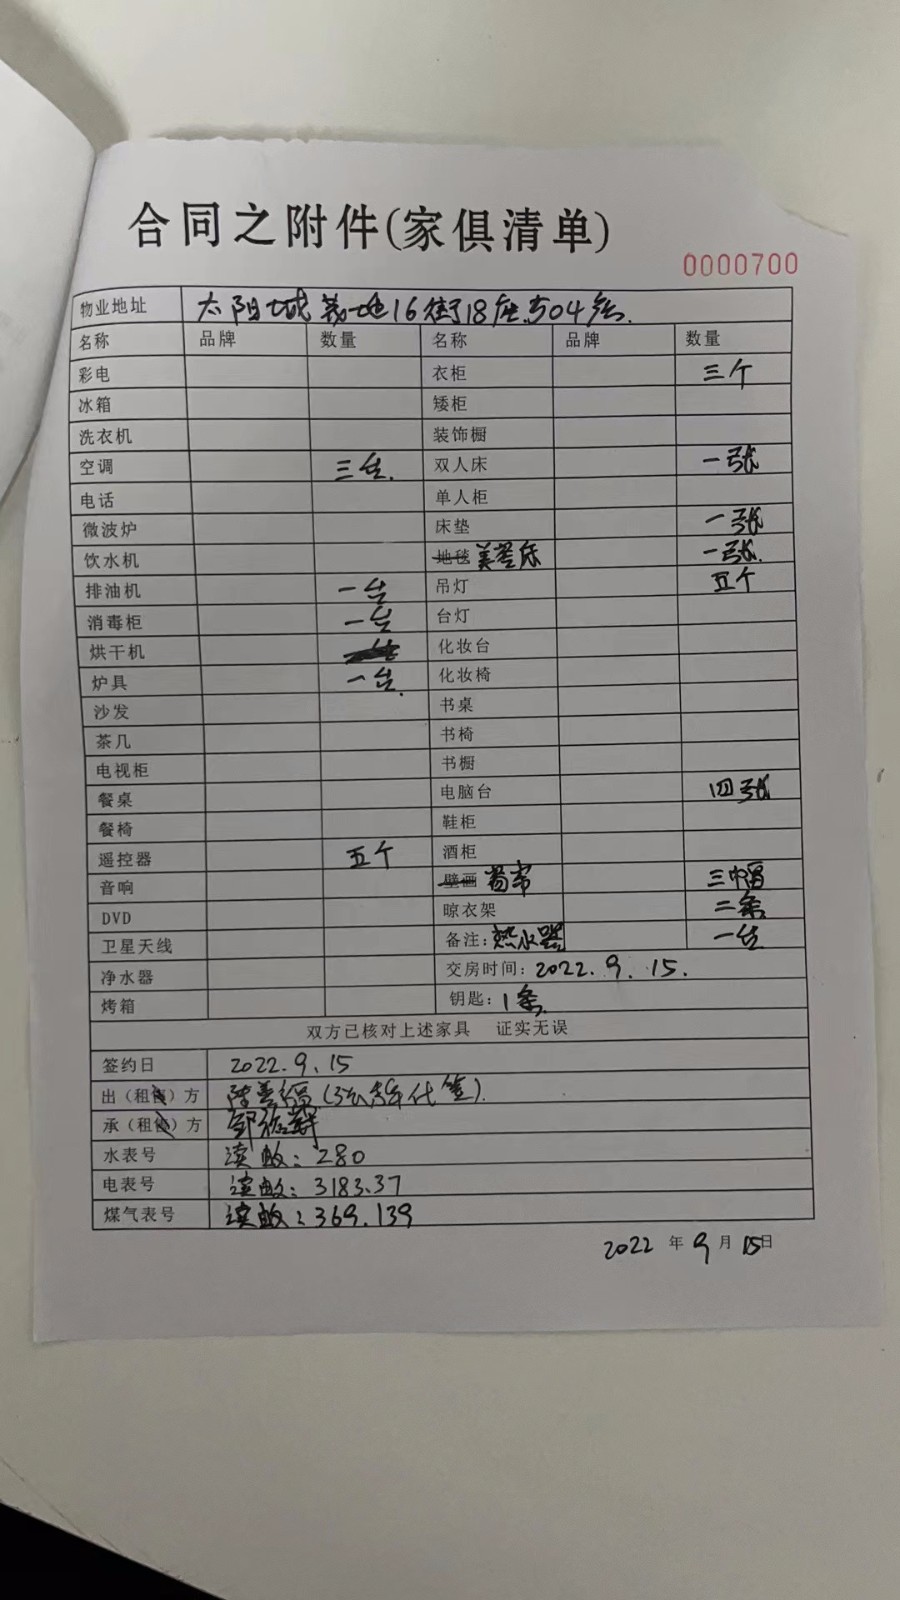 合同之附件(家俱清单)
0000700
物业地址 太阳城 16街18座504
名称 品牌 数量 名称 品牌 数量
彩电 衣柜 三个
冰箱 矮柜
洗衣机 装饰橱
空调 三台. 双人床 一张
电话 单人柜
微波炉 床垫 一张
饮水机 地毯 一张.
排油机 一台 吊灯 五个
消毒柜 一台 台灯
烘干机 化妆台
炉具 一台. 化妆椅
沙发 书桌
茶几 书椅
电视柜 书橱
餐桌 电脑台 四张
餐椅 鞋柜
遥控器 五个 酒柜
音响 壁画 窗帘 三幅
DVD 晾衣架 二条
卫星天线 备注:热水器 一台
净水器 交房时间:2022.9.15.
烤箱 钥匙:1条
双方已核对上述家具 证实无误
签约日 2022.9.15
出(租售)方 代签).
承(租)方 邹
水表号 读数:280
电表号 读数:3183.37
煤气表号 读数:369.139
2022 年 9 月 15日